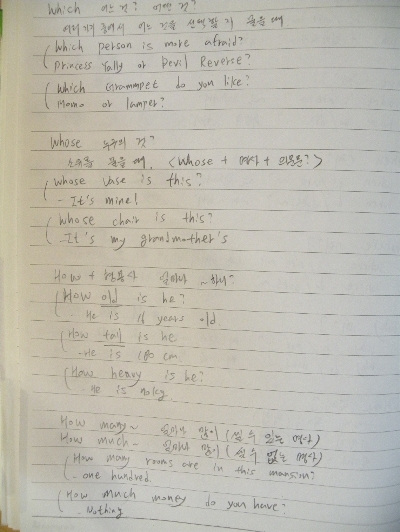 Which 어느 것? 어떤 것?
여러가지 중에서 어느 것을 선택할지 물을 때
Which person is more afraid?
Princess Yally or Devil Reverse?
Which Grammpet do you like?
Homo or lamper?
Whose 누구의 것?
소유를 물을 때, <Whose + 명사 + 의문문?>
Whose vase is this?
- It's mine!
Whose chair is this?
- It's my grandmother's
How + 형용사 얼마나 ~하니?
How old is he?
- He is 16 years old
How tall is he
- He is 180 cm
How heavy is he?
He is
How many~ 얼마나 많이 (셀 수 있는 명사)
How much~ 얼마나 많이 (셀 수 없는 명사)
How many rooms are in this mansion?
- one hundred.
How much money do you have?
- Nothing